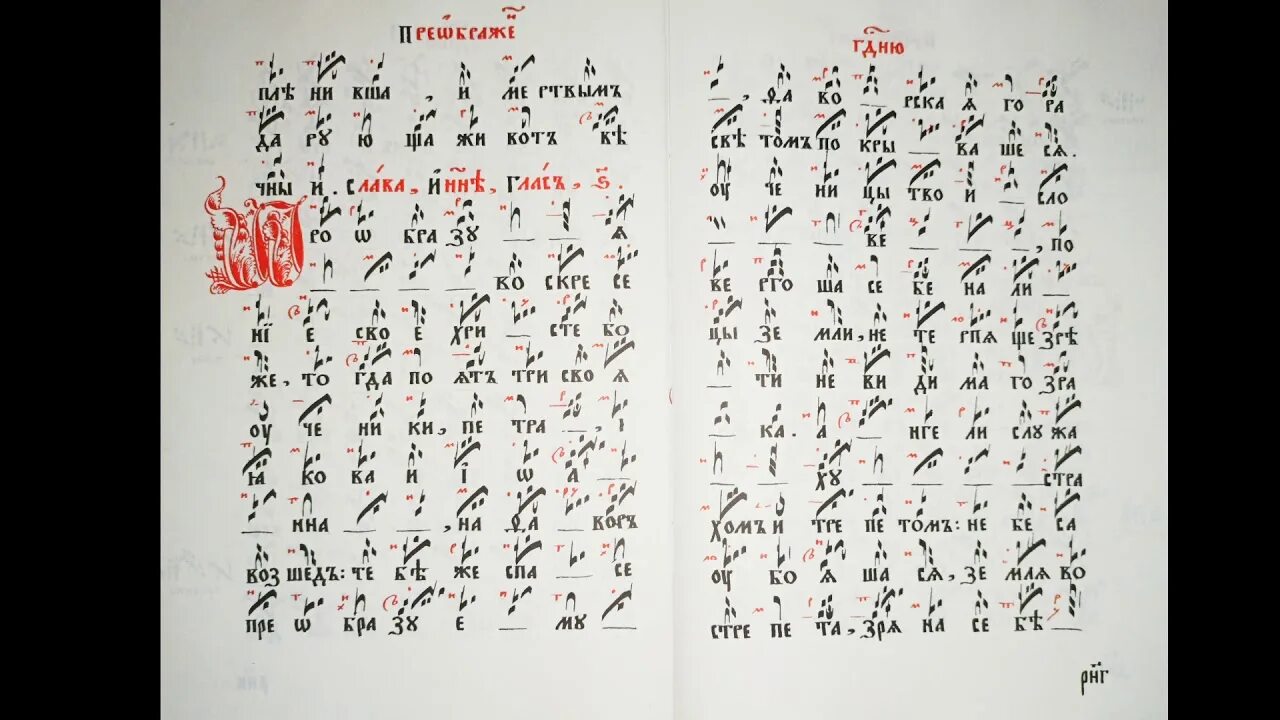 Преѡбраже҃н
плѣ ни вша , и ме ртвымъ
да рую ща жи вотъ вѣ
чны и . слава, и҆ ны҃нѣ, гласъ, ѕ҃.
про ѡ бра зу _ _ я
_ _ _ _ во скре се
нїе свое хри _ сте бо
же, то гда по ѩтъ три сво я
ѹ че ни ки, пе тра _ , і
ꙗ ко ва и і ѡ а _
_ нна _ _ , на ѳа _ воръ
возшедъ: те бѣ же спа _ се
пре ѡ бра зу е _ му _
гд҃ню
_ , ѳа во _ рьская го ра
свѣ томъ по кры _ ва ше ся.
ѹ че ни цы тво и _ сло
_ _ _ ве _ _ _ , по
ве рго ша се бе на ли _
цы зе мли, не те рпя ще зрѣ
_ ти не ви ди ма го зра
_ ка . а _ нге ли слу жа
_ _ ху _ _ _ _ стра
хомъ и тре пе томъ: не бе са
ѹ бо я ша ся, зе мля во
стре пе та, зря на се бѣ _
рн҃г